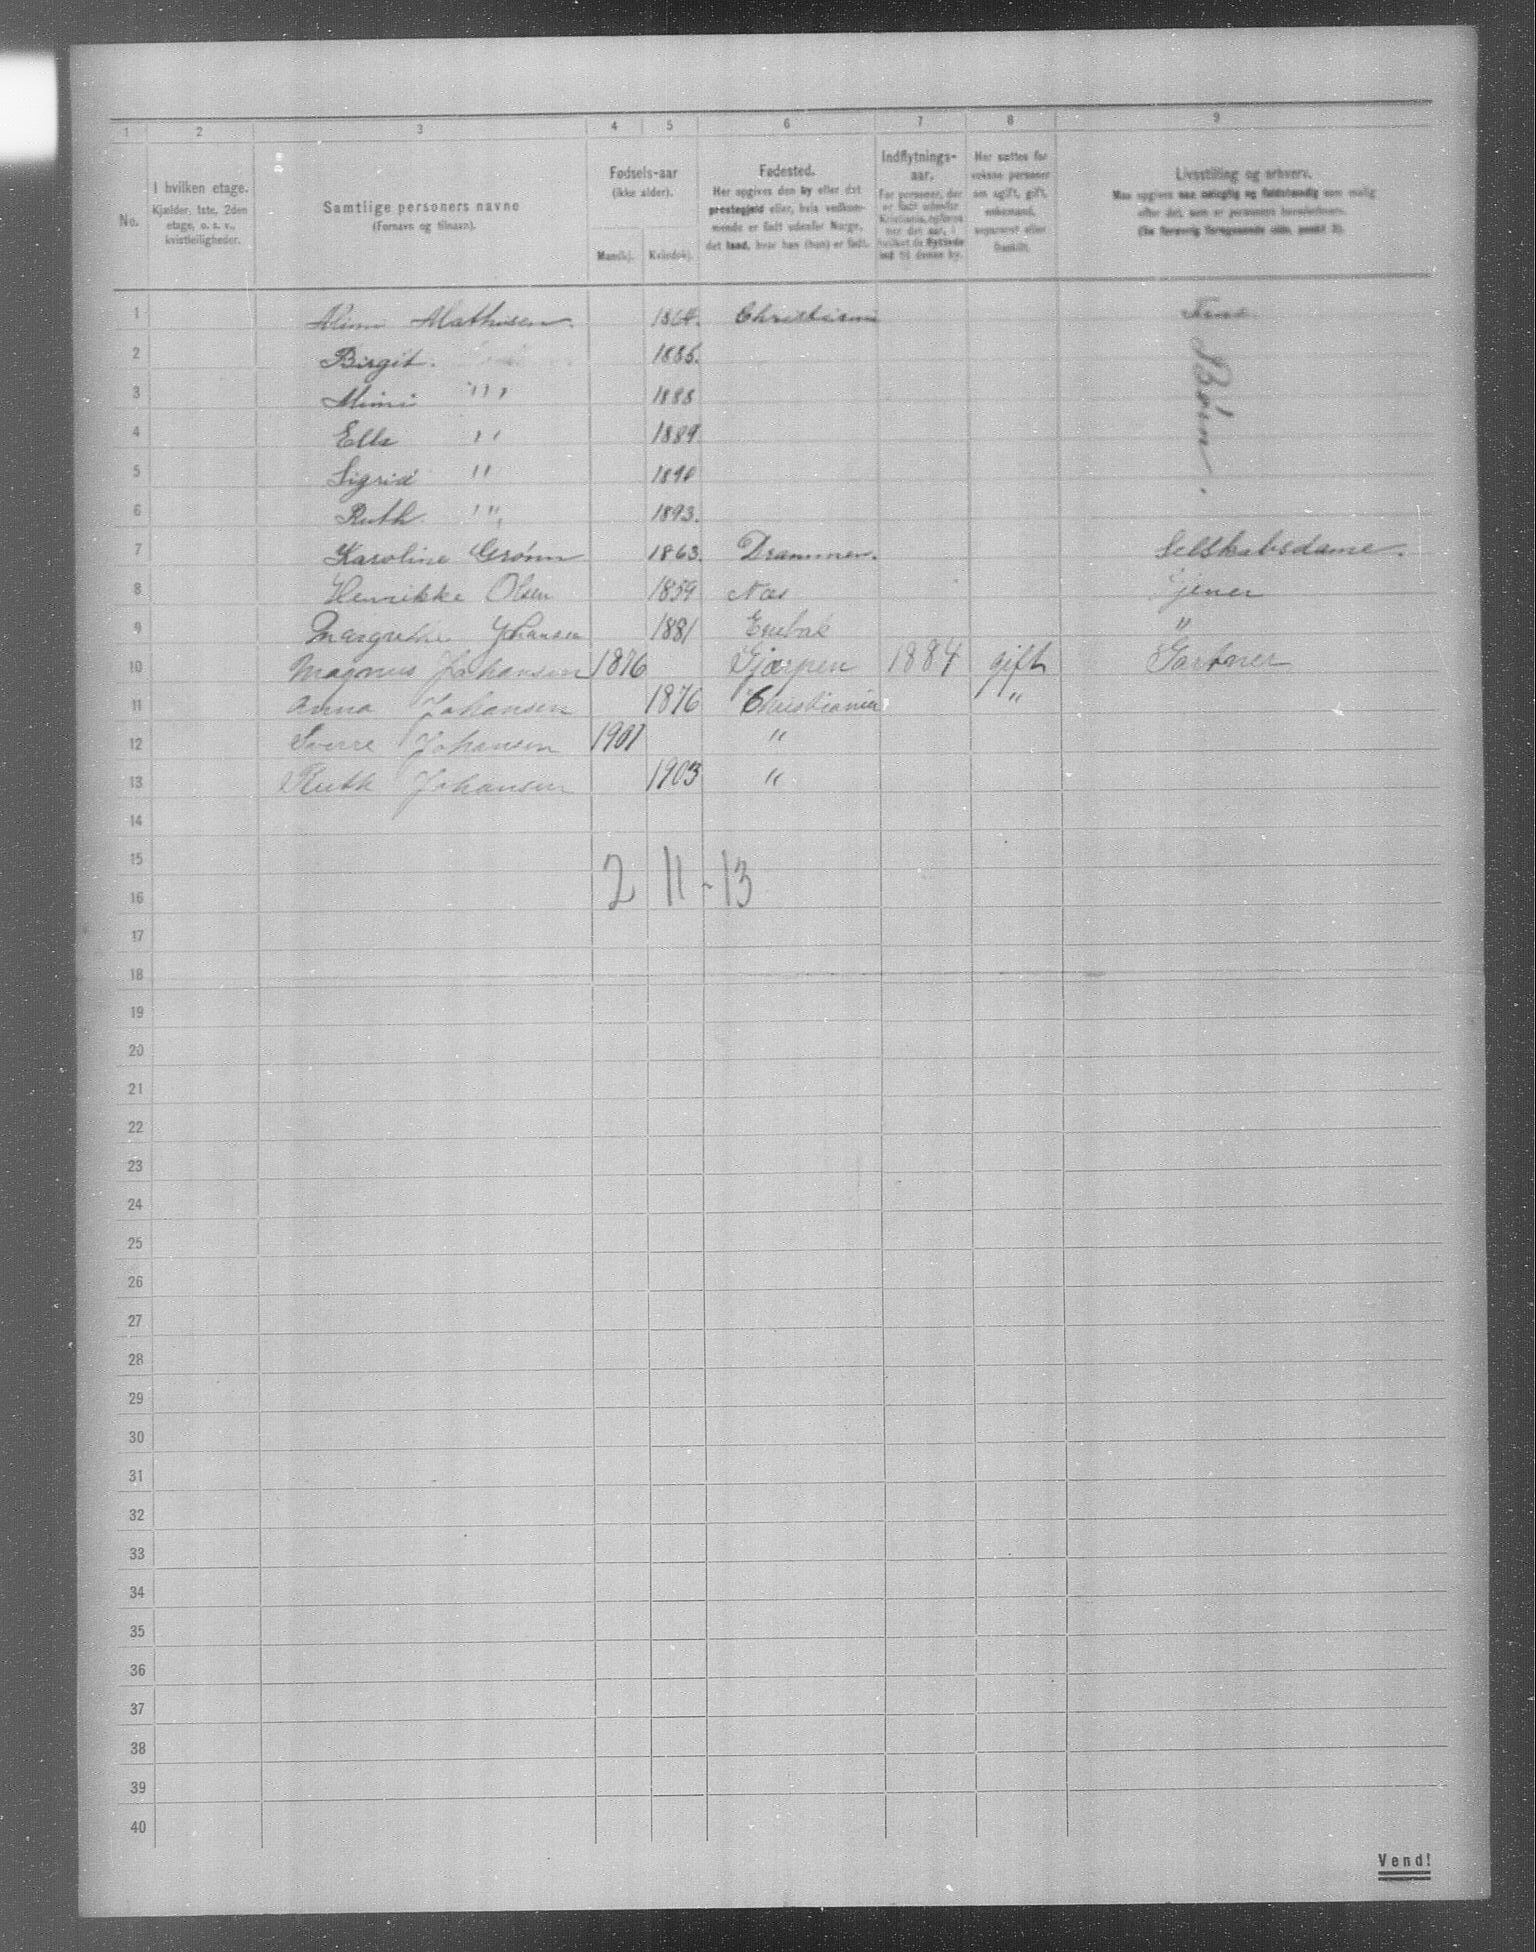 1 2 3 4 5 6 7 8 9
No.
I hvilken etage.
Kjælder, 1ste, 2den
etage, o. s. v.,
kvistleiligheder.
Samtlige personers navne
(Fornavn og tilnavn).
Fødsels-aar
(ikke alder).
Mandkj. Kvindekj.
Fødested.
Her opgives den by eller det
prestegjeld eller, hvis vedkom-
mende er født udenfor Norge,
det land, hvor han (hun) er født.
Indflytnings-
aar.
For personer, der
er født udenfor
Kristiania, opføres
her det aar, i
hvilket de flyttede
ind til denne by.
Her sættes for
voksne personer
om ugift, gift,
enkemand,
separeret eller
fraskilt.
Livsstilling og erhverv.
Man opgives saa nøiagtig og fuldstændig som mulig
efter det, som er personens
1 Mathisen. 1864. Christiania
2 Birgit. 1885.
3 Mimi " 1888
4 Ella " 1889
5 Sigrid " 1890
6 Ruth " 1893.
Børn.
7 Karoline Grønn 1863. Drammen. Selskabsdame.
8 Henrikke Olsen 1859 Næs Tjener
9 Margrethe Johansen 1881 Enebak "
10 Magnus Johansen 1876 Gjerpen 1884 gift Gartner
11 Anna Johansen 1876 Christiania "
12 Sverre Johansen 1901 "
13 Ruth Johansen 1903 "
14
15
2 11 - 13
16
17
18
19
20
21
22
23
24
25
26
27
28
29
30
31
32
33
34
35
36
37
38
39
40
Vend!